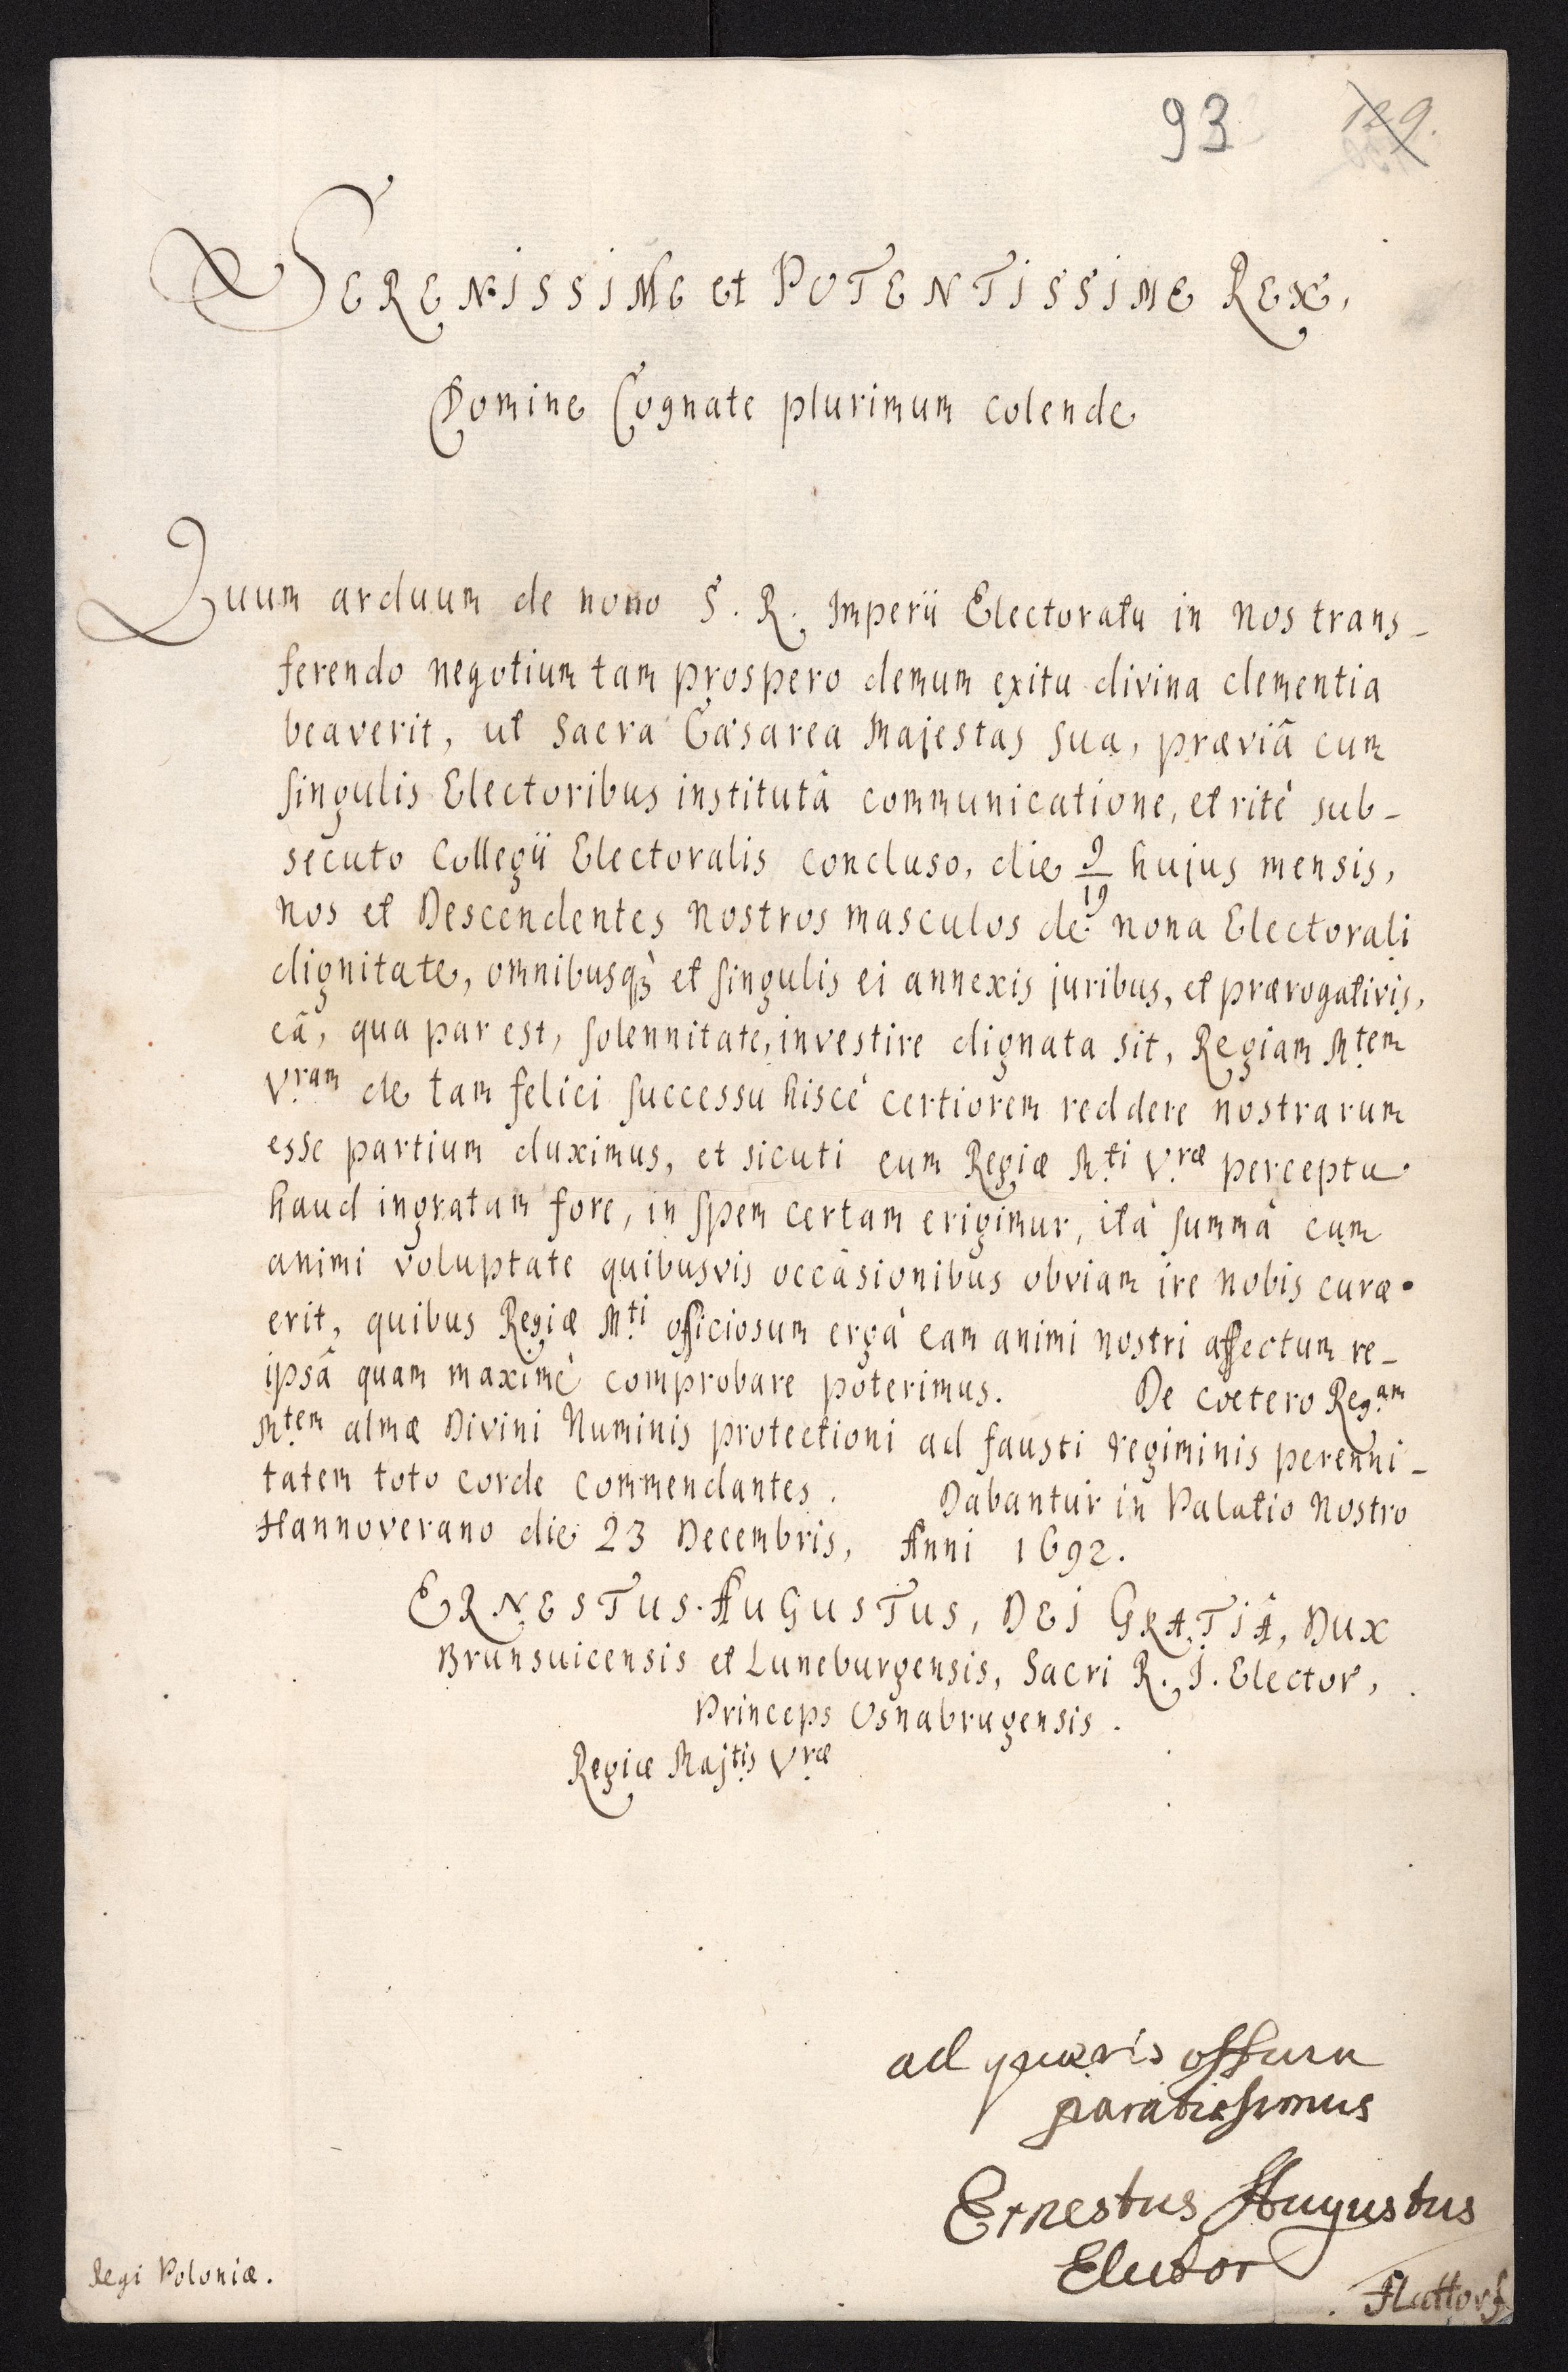 93 129.
SERENISSIME et POTENTISSIME REX,
Domine Cognate plurimum colende
Quum arduum de nono S. R. Imperii Electoratu in nos trans-
ferendo negotium tam prospero demum exitu divina clementia
beaverit, ut Sacra Cæsarea Majestas sua, præviâ cum
singulis Electoribus institutâ communicatione, et ritè sub-
secuto Collegii Electoralis concluso, die 9/19 hujus mensis,
nos et Descendentes nostros masculos de nona Electorali
dignitate, omnibusq3 et singulis ei annexis juribus, et prærogativis,
eâ, qua par est, solennitate, investire dignata sit, Regiam M.tem
V.ram de tam felici successu hisce certiorem reddere nostrarum
esse partium duximus, et sicuti eum Regiæ M.ti V.ræ perceptu
haud ingratum fore, in spem certam erigimur, ità summâ cum
animi voluptate quibusvis occasionibus obviam ire nobis curæ
erit, quibus Regiæ M.ti officiosum ergà eam animi nostri affectum re-
ipsâ quam maximè comprobare poterimus. De cœtero Reg.am
M.tem almæ Divini Numinis protectioni ad fausti regiminis perenni-
tatem toto corde commendantes. Dabantur in Palatio Nostro
Hannoverano die 23 Decembris, Anni 1692.
ERNESTUS AUGUSTUS, DEI GRATIÂ, DUX
Brunsuicensis et Luneburgensis, Sacri R. I. Elector,
Princeps Osnabrugensis.
Regiæ Maj.tis V.ræ
ad quævis
paratissimus
Ernestus Augustus
Elector
Regi Poloniæ.